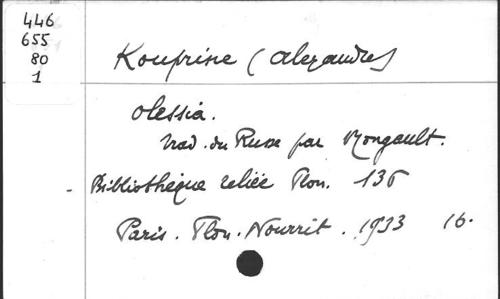 446
655
80
1
Kouprine (Alexandre)
Olessia.
trad. du Russe par Mongault.
- Bibliothèque reliée Plon. 136
Paris. Plon. Nourrit. 1933 16.